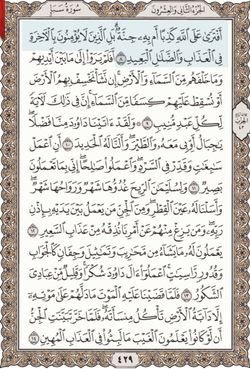 الجزء الثاني والعشرون سورة سبأ
أَفْتَرَىٰ عَلَى ٱللَّهِ كَذِبًا أَم بِهِۦ جِنَّةُۢ ۗ بَلِ ٱلَّذِينَ لَا يُؤْمِنُونَ بِٱلْـَٔاخِرَةِ
فِى ٱلْعَذَابِ وَٱلضَّلَـٰلِ ٱلْبَعِيدِ ٨ أَفَلَمْ يَرَوْا۟ إِلَىٰ مَا بَيْنَ أَيْدِيهِمْ
وَمَا خَلْفَهُم مِّنَ ٱلسَّمَآءِ وَٱلْأَرْضِ ۚ إِن نَّشَأْ نَخْسِفْ بِهِمُ ٱلْأَرْضَ
أَوْ نُسْقِطْ عَلَيْهِمْ كِسَفًا مِّنَ ٱلسَّمَآءِ ۚ إِنَّ فِى ذَٰلِكَ لَـَٔايَةً
لِّكُلِّ عَبْدٍ مُّنِيبٍ ٩ ۞ وَلَقَدْ ءَاتَيْنَا دَاوُۥدَ مِنَّا فَضْلًا ۖ
يَـٰجِبَالُ أَوِّبِى مَعَهُۥ وَٱلطَّيْرَ ۖ وَأَلَنَّا لَهُ ٱلْحَدِيدَ ١٠ أَنِ ٱعْمَلْ
سَـٰبِغَـٰتٍ وَقَدِّرْ فِى ٱلسَّرْدِ ۖ وَٱعْمَلُوا۟ صَـٰلِحًا ۖ إِنِّى بِمَا تَعْمَلُونَ
بَصِيرٌ ١١ وَلِسُلَيْمَـٰنَ ٱلرِّيحَ غُدُوُّهَا شَهْرٌ وَرَوَاحُهَا شَهْرٌ ۖ
وَأَسَلْنَا لَهُۥ عَيْنَ ٱلْقِطْرِ ۖ وَمِنَ ٱلْجِنِّ مَن يَعْمَلُ بَيْنَ يَدَيْهِ بِإِذْنِ
رَبِّهِۦ ۖ وَمَن يَزِغْ مِنْهُمْ عَنْ أَمْرِنَا نُذِقْهُ مِنْ عَذَابِ ٱلسَّعِيرِ ١٢
يَعْمَلُونَ لَهُۥ مَا يَشَآءُ مِن مَّحَـٰرِيبَ وَتَمَـٰثِيلَ وَجِفَانٍ كَٱلْجَوَابِ
وَقُدُورٍ رَّاسِيَـٰتٍ ۚ ٱعْمَلُوٓا۟ ءَالَ دَاوُۥدَ شُكْرًا ۚ وَقَلِيلٌ مِّنْ عِبَادِىَ
ٱلشَّكُورُ ١٣ فَلَمَّا قَضَيْنَا عَلَيْهِ ٱلْمَوْتَ مَا دَلَّهُمْ عَلَىٰ مَوْتِهِۦٓ
إِلَّا دَآبَّةُ ٱلْأَرْضِ تَأْكُلُ مِنسَأَتَهُۥ ۖ فَلَمَّا خَرَّ تَبَيَّنَتِ ٱلْجِنُّ
أَن لَّوْ كَانُوا۟ يَعْلَمُونَ ٱلْغَيْبَ مَا لَبِثُوا۟ فِى ٱلْعَذَابِ ٱلْمُهِينِ ١٤
٤٢٩